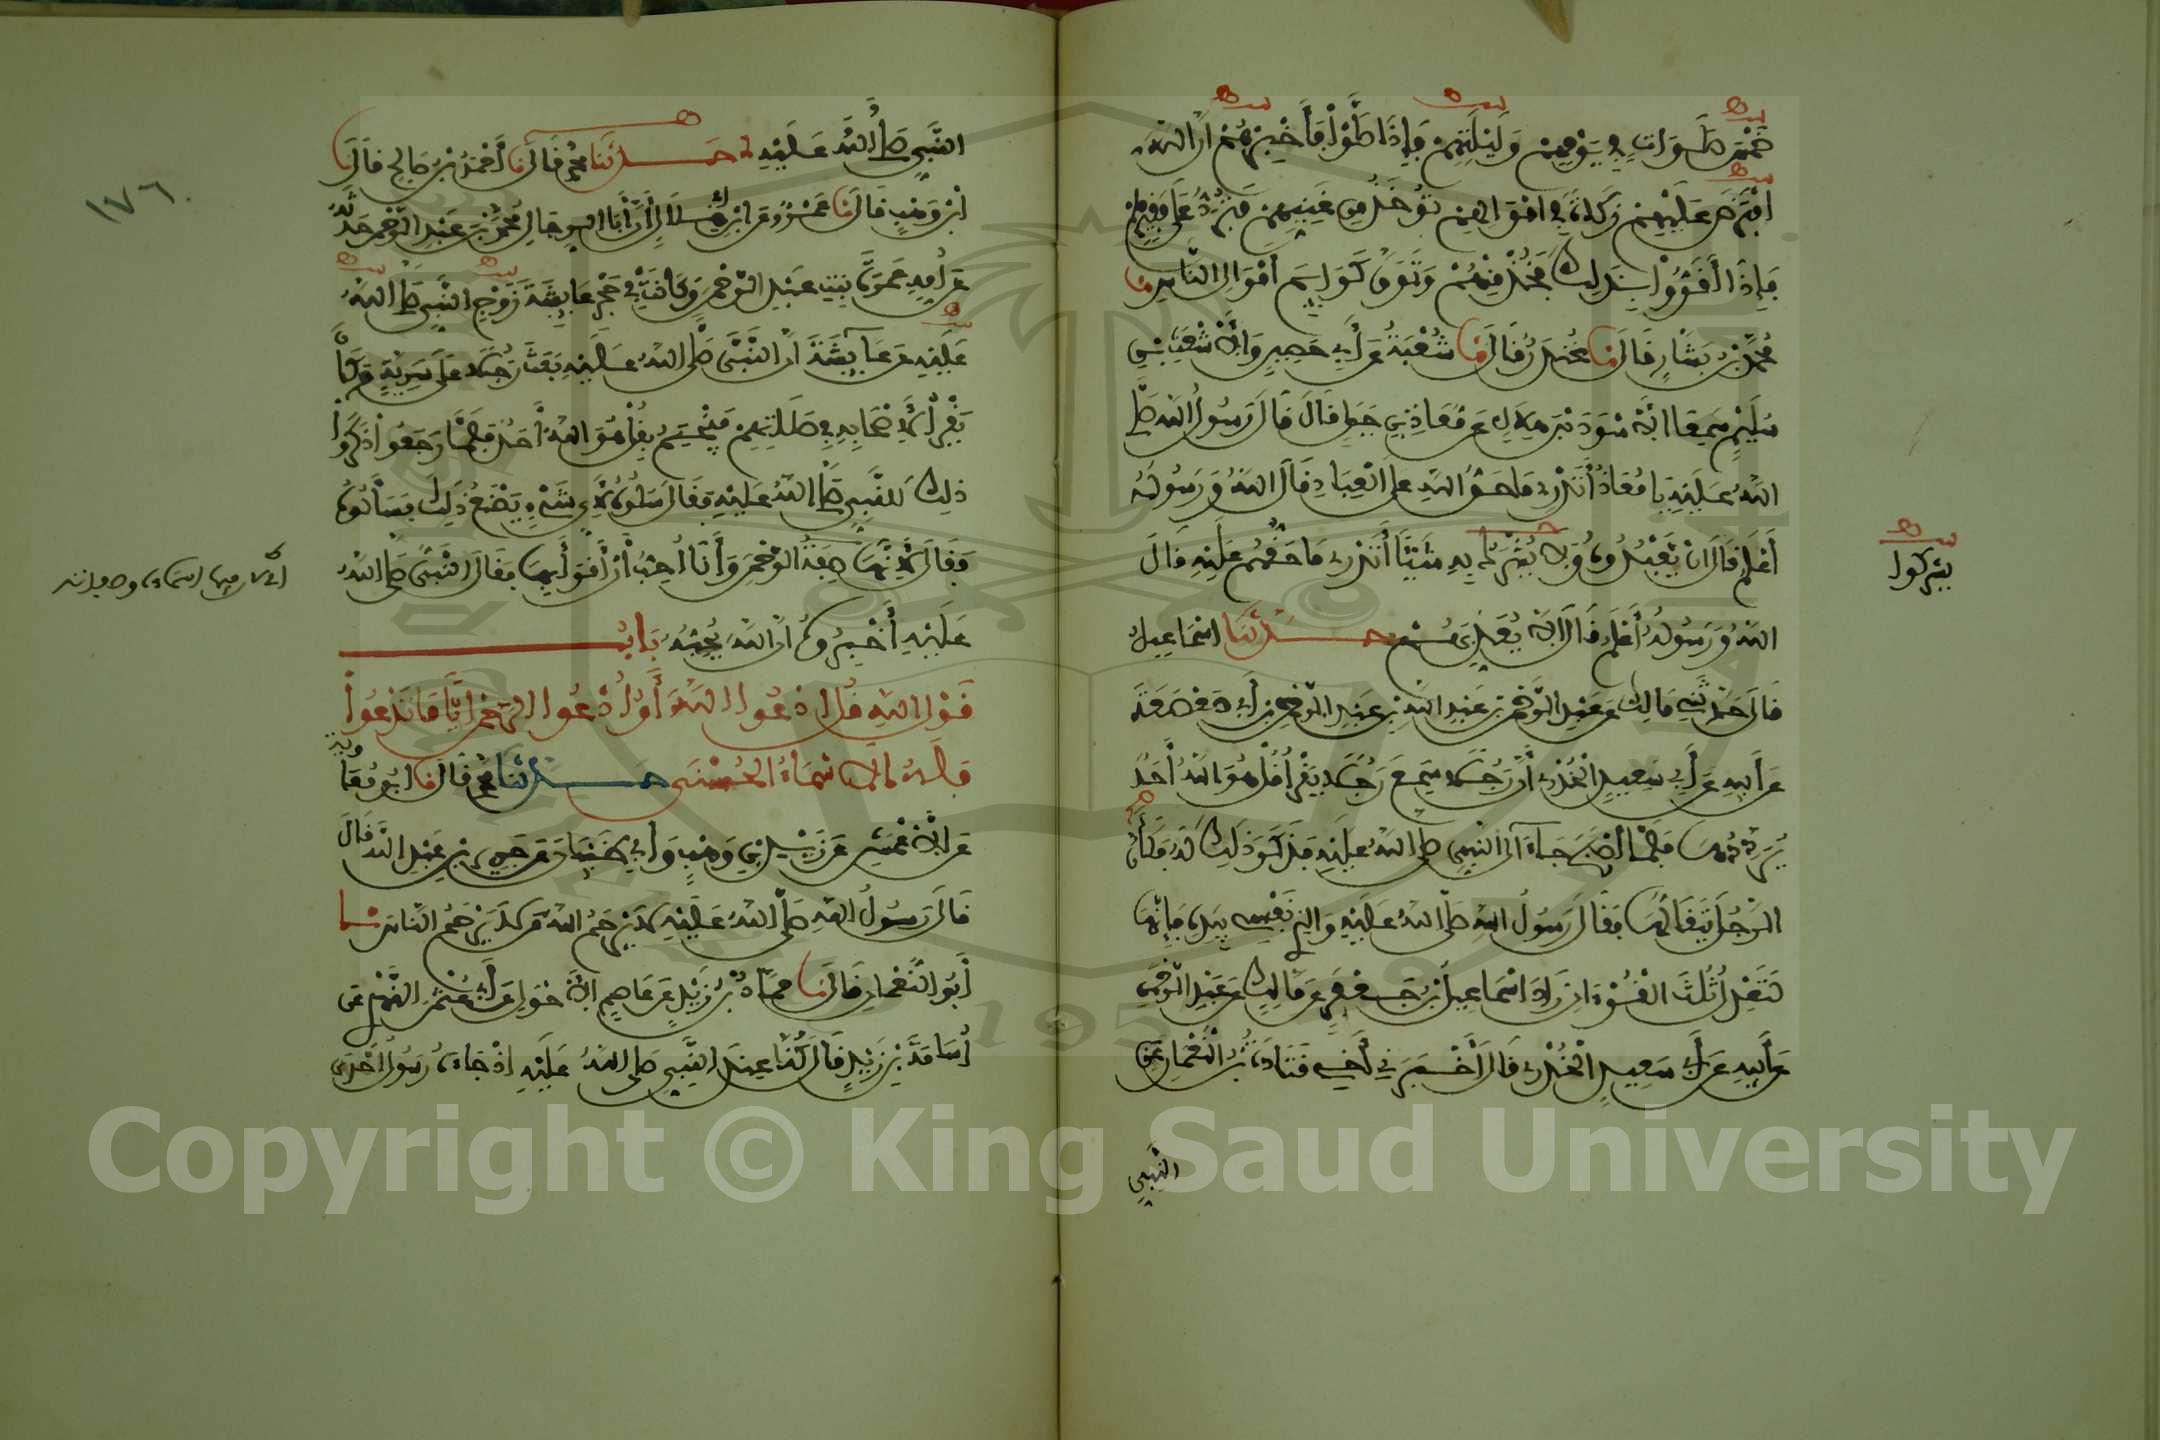 خمس صلوات في يومهم وليلتهم فإذا صلوا فأخبرهم أن الله
افترض عليهم زكاة في أموالهم تؤخذ من غنيهم فترد على فقيرهم
فإذا أقروا بذلك فخذ منهم وتوق كرائم أموال الناس نا
محمد بن بشار قال نا غندر قال نا شعبة عن أبي حصين والأشعث بن
سليم سمعا الأسود بن هلال عن معاذ بن جبل قال قال رسول الله صلى
الله عليه يا معاذ أتدري ما حق الله على العباد قال الله ورسوله
أعلم قال أن يعبدوه ولا يشرك به شيئا أتدري ما حقهم عليه قال
الله ورسوله أعلم قال ألا يعذبهم حدثنا إسماعيل
قال حدثني مالك عن عبد الرحمن بن عبد الله بن عبد الرحمن بن أبي صعصعة
عن أبيه عن أبي سعيد الخدري أن رجلا سمع رجلا يقرأ قل هو الله أحد
يرددها فلما أصبح جاء إلى النبي صلى الله عليه فذكر ذلك له فكأن
الرجل يتقالها فقال رسول الله صلى الله عليه والذي نفسي بيده فإنها
لتعدل ثلث القرءان زاد إسماعيل بن جعفر عن مالك عن عبد الرحمن
عن أبيه عن أبي سعيد الخدري قال أخبرني أخي قتادة بن النعمان عن
النبي
يشركوا
النبي صلى الله عليه حدثنا محمد قال نا أحمد بن صالح قال نا
ابن وهب قال نا عمرو عن ابن أبي هلال أن أبا الرجال محمد بن عبد الرحمن حدثه
عن أمه عمرة بنت عبد الرحمن وكانت في حجر عائشة زوج النبي صلى الله
عليه عن عائشة أن النبي صلى الله عليه بعث رجلا على سرية وكان
يقرأ لأصحابه في صلاتهم فيختم بقل هو الله أحد فلما رجعوا ذكروا
ذلك للنبي صلى الله عليه فقال سلوه لأي شيء يصنع ذلك فسألوه
فقال لأنها صفة الرحمن وأنا أحب أن أقرأ بها فقال النبي صلى الله
عليه أخبروه أن الله يحبه باب
قول الله قل ادعوا الله أو ادعوا الرحمن أيا ما تدعوا
فله الأسماء الحسنى حدثنا محمد قال نا أبو معاوية
عن الأعمش عن زيد بن وهب وأبي ظبيان عن جرير بن عبد الله قال
قال رسول الله صلى الله عليه لا يرحم الله من لا يرحم الناس نا
أبو النعمان قال نا حماد بن زيد عن عاصم الأحول عن أبي عثمان النهدي عن
أسامة بن زيد قال كنا عند النبي صلى الله عليه إذ جاءه رسول إحدى
١٧٦
Copyright © King Saud University